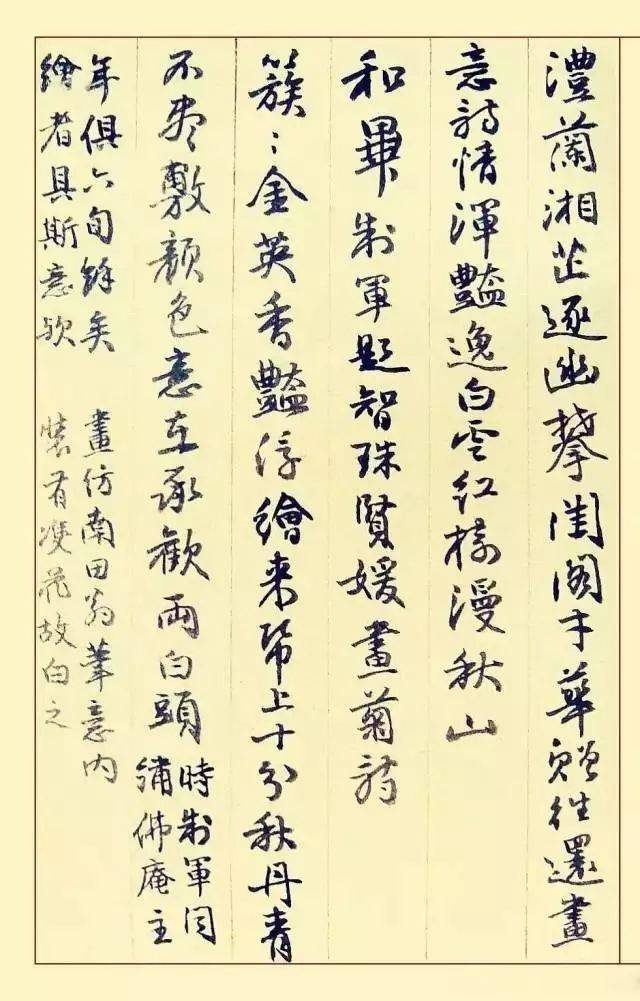 澧蘭湘芷逐幽攀閨閣才華贈往還畫
意詩情渾豔逸白雲紅樹漫秋山
和畢制軍題智珠賢媛畫菊詩
簇〻金英香豔浮繪來帋上十分秋丹青
不盡敷顏色意在承歡兩白頭
時制軍同
繡佛庵主
年俱六旬餘矣
繪者具斯意欤
畫仿南田翁筆意內
裝有雙花故白之